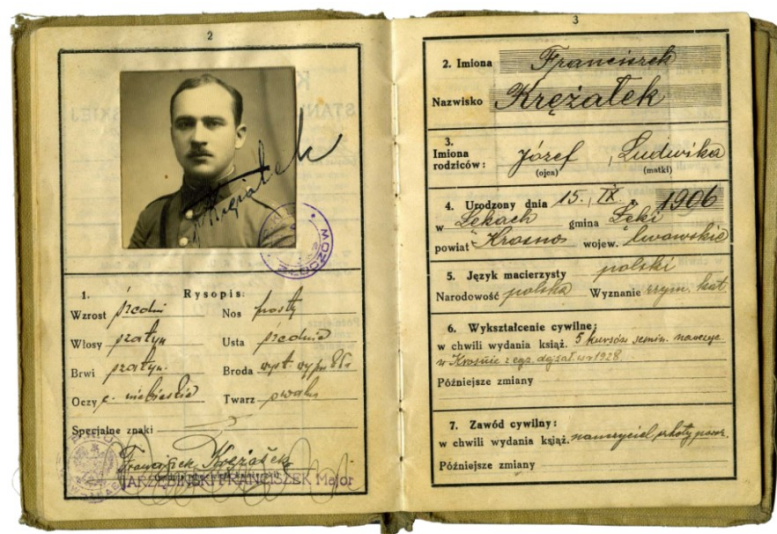 2
Krężałek
ZŁOCZÓW
1. Rysopis:
Wzrost średni Nos prosty
Włosy szatyn Usta średnie
Brwi szatyn. Broda
Oczy c. niebieskie Twarz owalna
Specjalne znaki
Franciszek Krężałek
JARZĘBIŃSKI FRANCISZEK Major
3
2. Imiona Franciszek
Nazwisko Krężałek
3.
Imiona
rodziców: Józef, Ludwika
(ojca) (matki)
4. Urodzony dnia 15. IX. 1906
w Łękach gmina Łęki
powiat Krosno wojew. lwowskie
5. Język macierzysty polski
Narodowość polska Wyznanie rzym. kat.
6. Wykształcenie cywilne:
w chwili wydania książ. 5 kursów semin. naucz.
w Krośnie z egz. dojrzał. w 1928
Późniejsze zmiany
7. Zawód cywilny:
w chwili wydania książ. nauczyciel szkoły powsz.
Późniejsze zmiany